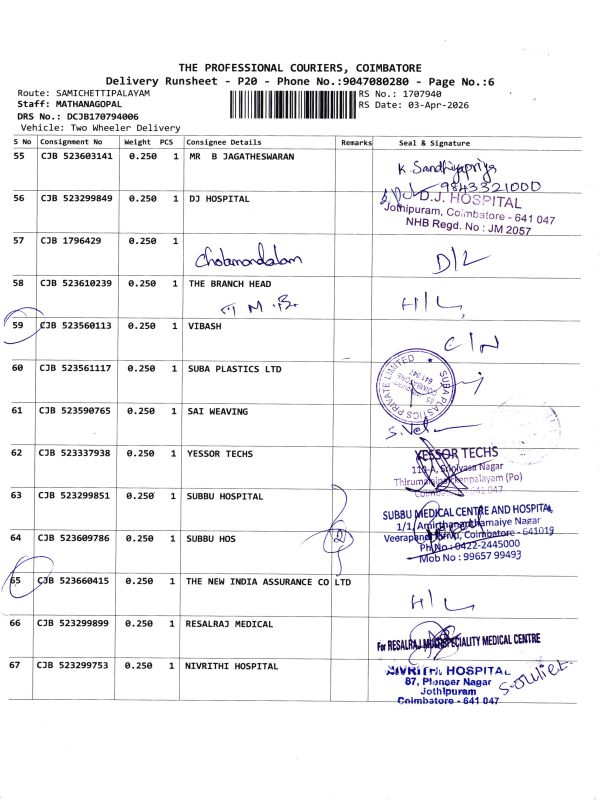 THE PROFESSIONAL COURIERS, COIMBATORE
Delivery Runsheet - P20 - Phone No.:9047080280 - Page No.:6
Route: SAMICHETTIPALAYAM
Staff: MATHANAGOPAL
DRS No.: DCJB170794006
Vehicle: Two Wheeler Delivery
RS No.: 1707940
RS Date: 03-Apr-2026
S No Consignment No Weight PCS Consignee Details Remarks Seal & Signature
55 CJB 523603141 0.250 1 MR B JAGATHESWARAN
K. Sandhiyapriya
9843321000
56 CJB 523299849 0.250 1 DJ HOSPITAL
D.J. HOSPITAL
Jothipuram, Coimbatore - 641 047
NHB Regd. No : JM 2057
57 CJB 1796429 0.250 1
Cholamandalam D/L
58 CJB 523610239 0.250 1 THE BRANCH HEAD
T M.B H/L
59 CJB 523560113 0.250 1 VIBASH
C/N
60 CJB 523561117 0.250 1 SUBA PLASTICS LTD
SUBA PLASTICS PRIVATE LIMITED
COIMBATORE
641 047
61 CJB 523590765 0.250 1 SAI WEAVING
S. Vel
62 CJB 523337938 0.250 1 YESSOR TECHS
YESSOR TECHS
110-A, Srinivasa Nagar
(Po)
Coimbatore - 641 047
63 CJB 523299851 0.250 1 SUBBU HOSPITAL
SUBBU MEDICAL CENTRE AND HOSPITAL
1/1, Nagar
64 CJB 523609786 0.250 1 SUBBU HOS
2
Coimbatore - 641019
Ph No : 0422-2445000
Mob No : 99657 99493
65 CJB 523660415 0.250 1 THE NEW INDIA ASSURANCE CO LTD
H/L
66 CJB 523299899 0.250 1 RESALRAJ MEDICAL
For RESALRAJ MULTISPECIALITY MEDICAL CENTRE
67 CJB 523299753 0.250 1 NIVRITHI HOSPITAL
NIVRITHI HOSPITAL
87, Pioneer Nagar
Jothipuram
Coimbatore - 641 047